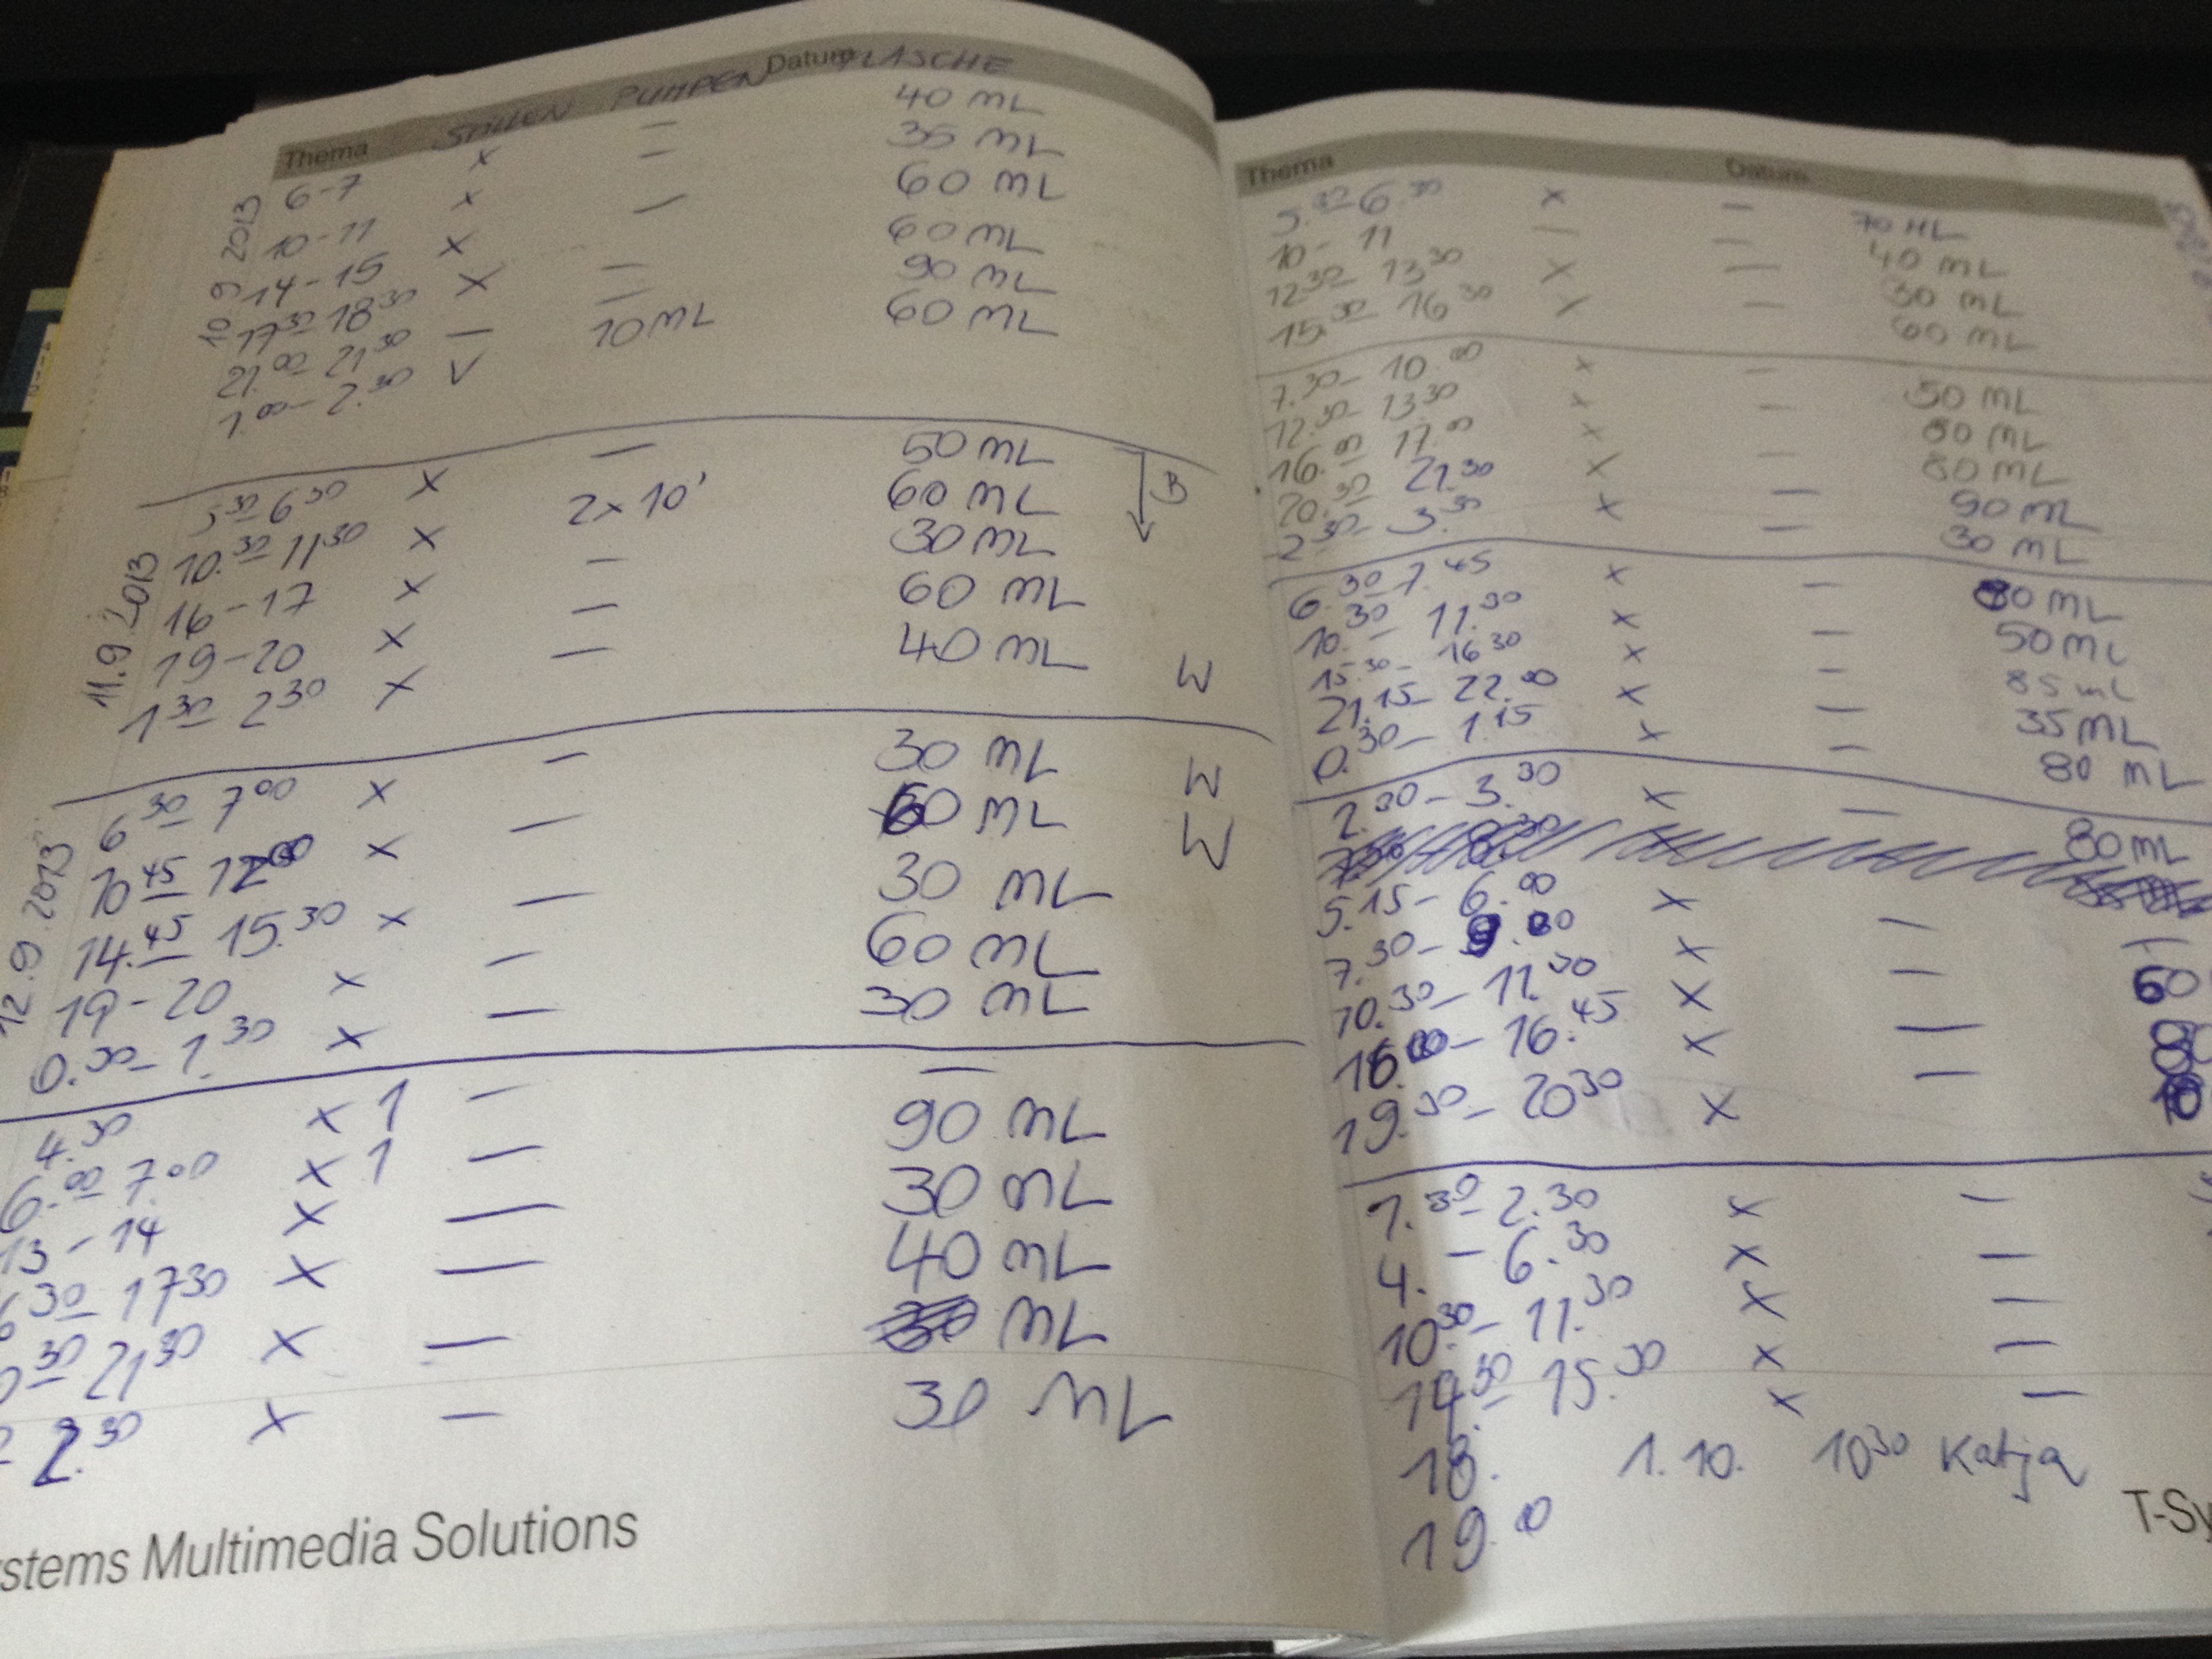 Thema STILLEN PUMPEN Datum FLASCHE
10 9 2013
6-7 x — 40 ML
10-11 x — 35 ML
14-15 x — 60 ML
17 30 - 18 30 x — 60 ML
21.00 21 30 — — 90 ML
1.00 - 2.30 V 10 ML 60 ML
11.9.2013
5 30 - 6 30 x — 50 ML
B
10.30 - 11 30 x 2 x 10' 60 ML
16-17 x — 30 ML
19-20 x — 60 ML
1 30 - 2 30 x — 40 ML W
12.9.2013
6 30 - 7 00 x — 30 ML W
10 45 - 12 00 x — 60 ML W
14.45 - 15.30 x — 30 ML
19-20 x — 60 ML
0.30 - 1.30 x — 30 ML
4.30 x 1 — —
6.00 - 7.00 x 1 — 90 ML
13 - 14 x — 30 ML
6 30 - 17 30 x — 40 ML
30 - 21 30 x — ML
2.30 x — 30 ML
stems Multimedia Solutions
Thema Datum
5.30 - 6.30 x — 70 ML
10 - 11 — — 40 ML
12 30 - 13 30 x — 30 ML
15.30 - 16 30 x — 60 ML
7.30 - 10.00 x — 50 ML
12.30 - 13 30 x — 80 ML
16.00 17.00 x — 80 ML
20.30 21.30 x — 90 ML
2 30 - 3.30 x — 30 ML
6.30 - 7.45 x — 80 ML
10 30 - 11.30 x — 50 ML
15.30 - 16 30 x — 85 mL
21.15 - 22.00 x — 35 ML
0.30 - 1.15 x — 80 ML
2.30 - 3.30 x — 80 ML
5.15 - 6.00 x — —
7.30 - 9.00 x — 60
10.30 - 11.30 x — 80
16.00 - 16.45 x —
19.30 - 20 30 x
1.30 - 2.30 x —
4. - 6.30 x —
10 30 - 11.30 x —
14.30 - 15.30 x —
18. x —
1.10. 10 30 Katja
19.00
T-Sy